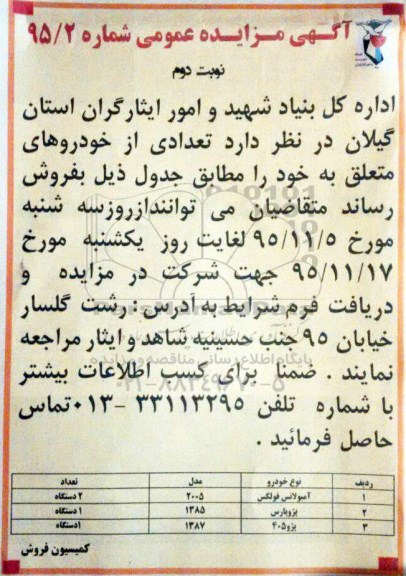 آگهی مزایده عمومی شماره ۹۵/۲
نوبت دوم
اداره کل بنیاد شهید و امور ایثارگران استان
گیلان در نظر دارد تعدادی از خودروهای
متعلق به خود را مطابق جدول ذیل بفروش
رساند متقاضیان می توانندازروزسه شنبه
مورخ ۹۵/۱۱/۵ لغایت روز یکشنبه مورخ
۹۵/۱۱/۱۷ جهت شرکت در مزایده و
دریافت فرم شرایط به آدرس : رشت گلسار
خیابان ۹۵ جنب حسینیه شاهد و ایثار مراجعه
نمایند . ضمنا برای کسب اطلاعات بیشتر
با شماره تلفن ۳۳۱۱۳۲۹۵ -۰۱۳تماس
حاصل فرمائید .
ردیف نوع خودرو مدل تعداد
۱ آمبولانس فولکس ۲۰۰۵ ۲ دستگاه
۲ پژوپارس ۱۳۸۵ ۱ دستگاه
۳ پژو۴۰۵ ۱۳۸۷ ۱دستگاه
کمیسیون فروش
پایگاه اطلاع رسانی مناقصه و مزایده